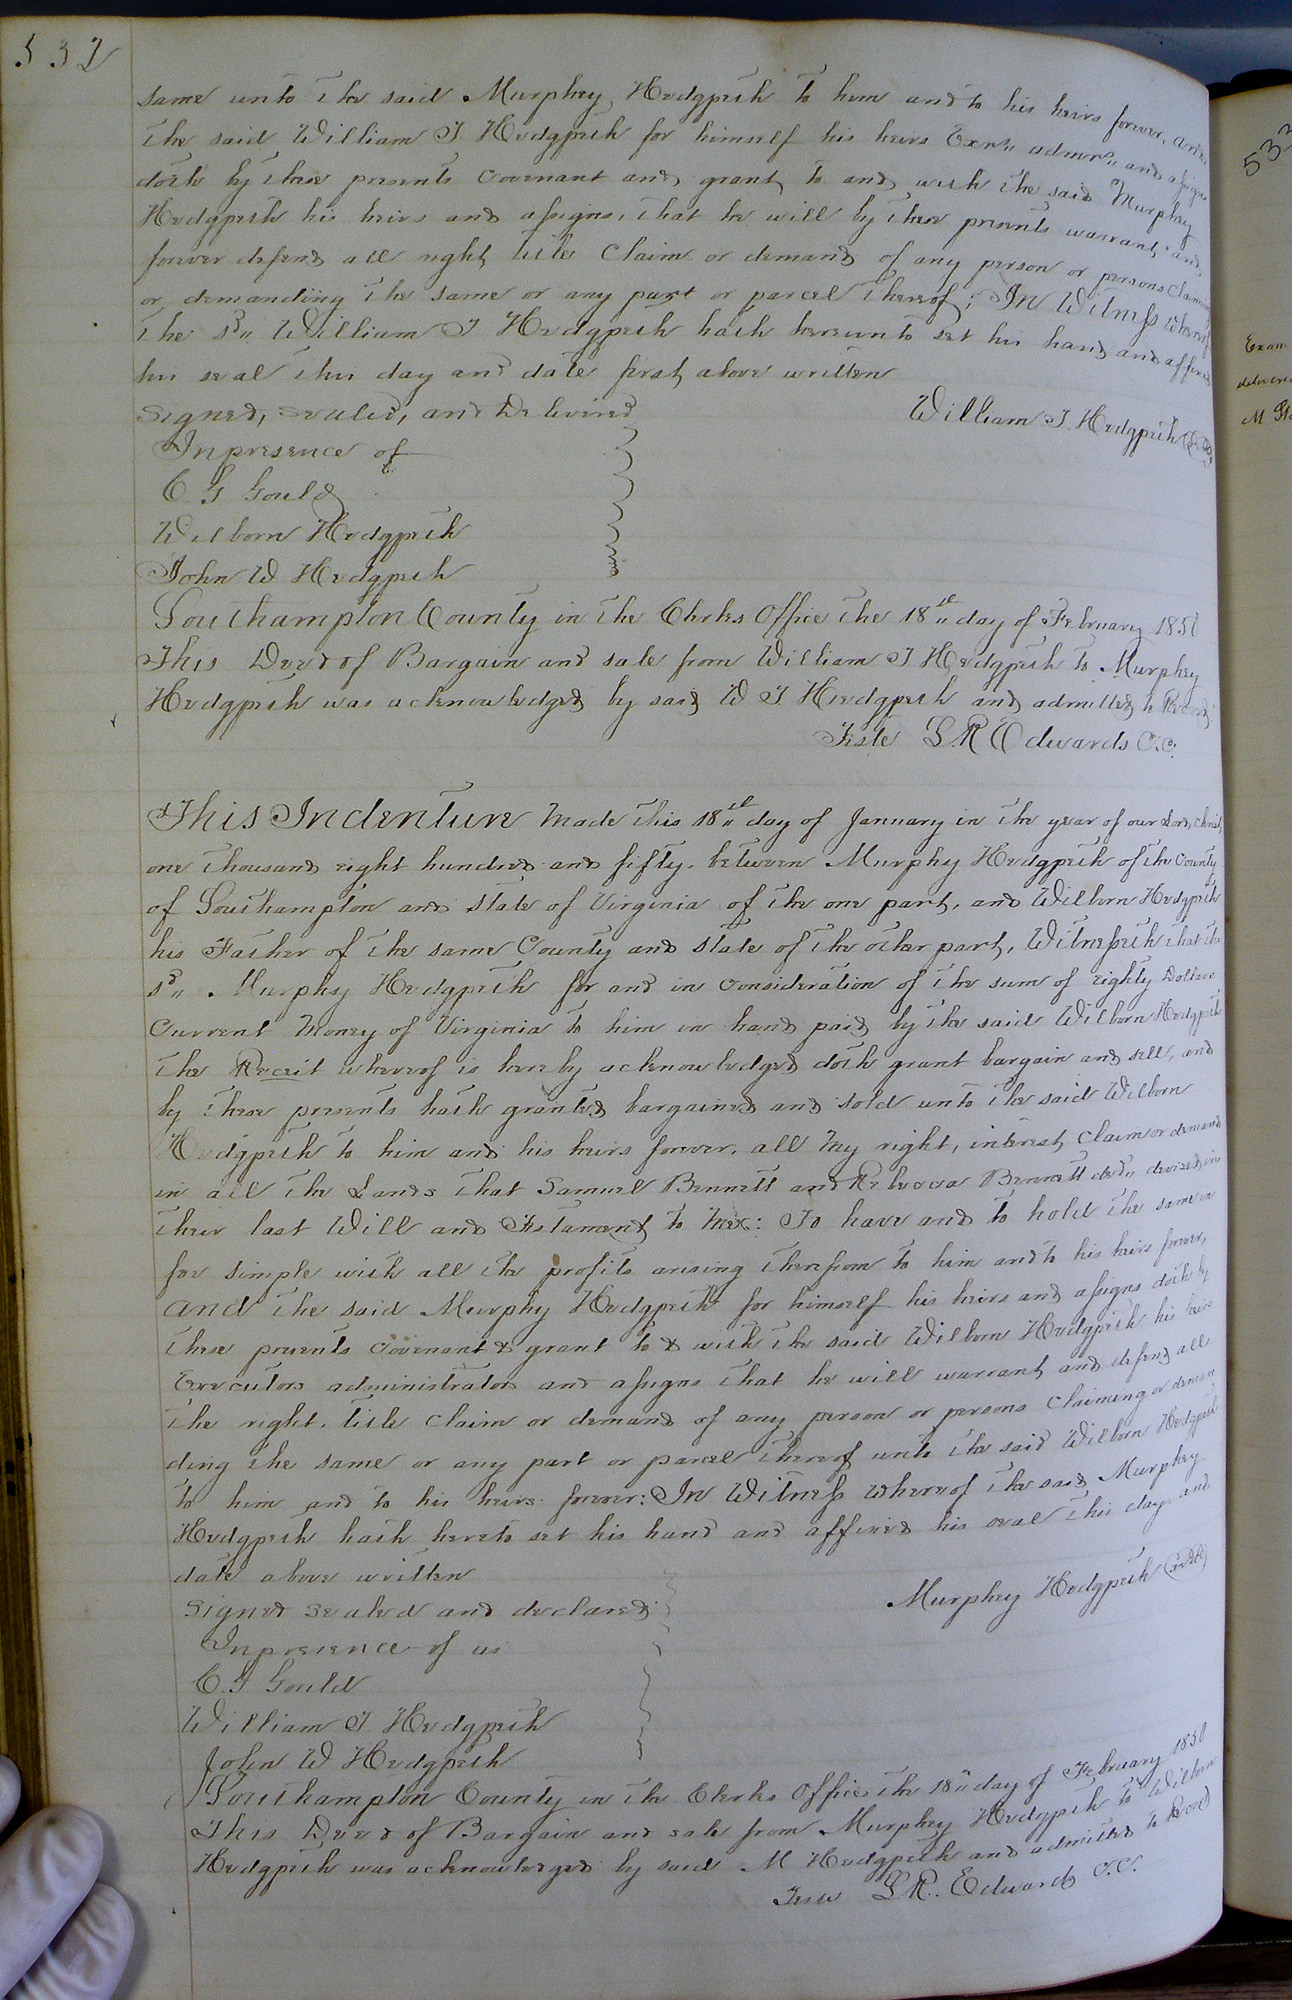 532
same unto the said Murphey Hedgpeth to him and to his heirs forever. and
the said William T Hedgpeth for himself his heirs Exrs admrs and assigns
doth by these presents covenant and grant to and with the said Murphey
Hedgpeth his heirs and assigns, that he will by these presents warrant and
forever defend all right title claim or demand of any person or persons claiming
or demanding the same or any part or parcel thereof; In Witness whereof
the sd William T Hedgpeth hath hereunto set his hand and affixed
his seal this day and date first above written
Signed, Sealed, and Delivered
William T. Hedgpeth
In presence of
C G Gould
Wilborn Hedgpeth
John W Hedgpeth
Southampton County in the Clerks Office the 18th day of February 1850
This Deed of Bargain and sale from William T Hedgpeth to Murphey
Hedgpeth was acknowledged by said W T Hedgpeth and admitted to Record
Teste L R Edwards C.C.
This Indenture Made this 18th day of January in the year of our Lord Christ
one thousand eight hundred and fifty. between Murphy Hedgpeth of the County
of Southampton and State of Virginia of the one part, and Wilborn Hedgpeth
his Father of the same County and State of the other part, Witnesseth that the
sd Murphy Hedgpeth for and in consideration of the sum of eighty Dollars
Current Money of Virginia to him in hand paid by the said Wilborn Hedgpeth
the Receit whereof is hereby acknowledged doth grant bargain and sell, and
by these presents hath granted bargained and sold unto the said Wilborn
Hedgpeth to him and his heirs forever, all my right, interest, claim or demand
in all the Lands that Samuel Bennett and Rebecca Bennett decd devised in
their last Will and Testament to me: To have and to hold the same in
fee simple with all the profits arising therefrom to him and to his heirs forever,
and the said Murphy Hedgpeth for himself his heirs and assigns doth by
these presents covenant & grant to & with the said Wilborn Hedgpeth his heirs
Executors administrators and assigns that he will warrant and defend all
the right. title claim or demand of any person or persons claiming or deman
ding the same or any part or parcel thereof unto the said Wilborn Hedgpeth
to him and to his heirs forever: In Witness whereof the said Murphey
Hedgpeth hath hereto set his hand and affixed his seal this day and
date above written
Signed Sealed and declared
Murphey Hedgpeth (seal)
In presence of us
C. G. Gould
William T Hedgpeth
John W Hedgpeth
Southampton County in the Clerks Office the 18th day of February 1850
This Deed of Bargain and sale from Murphey Hedgpeth to Wilborn
Hedgpeth was acknowledged by said M Hedgpeth and admitted to Record
Teste L R. Edwards C.C.
533
Exam
delivered